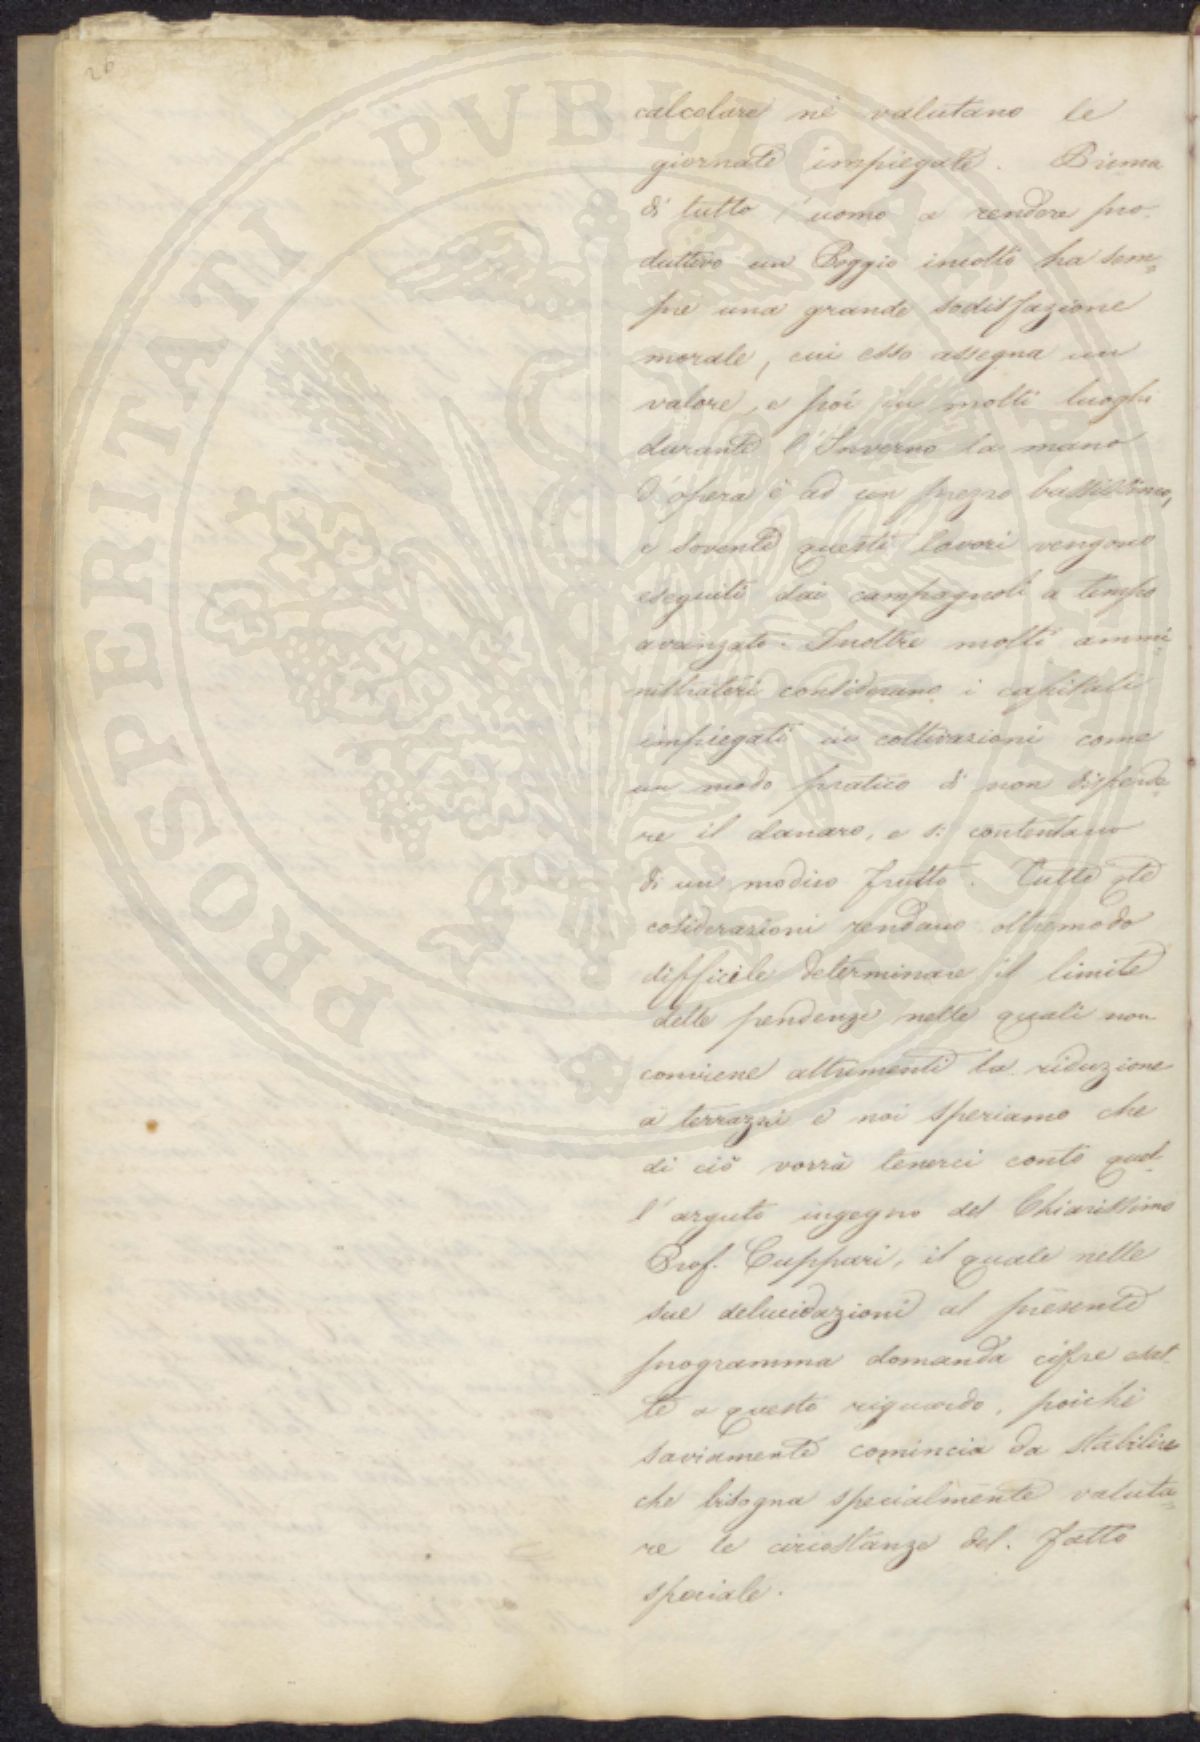 26
PROSPERITATI PVBLICAE
calcolare nè valutano le
giornate impiegate. Prima
di tutto l'uomo a rendere pro-
duttivo un Poggio incolto ha sem-
pre una grande sodisfazione
morale, cui esso assegna un
valore, e poi in molti luoghi
durante l'Inverno la mano
d'opera è ad un prezzo bassissimo,
e sovente questi lavori vengono
eseguiti dai campagnoli a tempo
avanzato. Inoltre molti ammi-
nistratori considerano i capitali
impiegati in coltivazioni come
un modo pratico di non disperde-
re il danaro, e si contentano
di un modico frutto. Tutte qte
cosiderazioni rendano oltremodo
difficile determinare il limite
delle pendenze nelle quali non
conviene altrimenti la riduzione
a terrazzi e noi speriamo che
di ciò vorrà tenerci conto quel-
l'arguto ingegno del Chiarissimo
Prof. Cuppari, il quale nelle
sue delucidazioni al presente
programma domanda cifre esat-
te a questo riguardo, poichè
saviamente comincia da stabilire
che bisogna specialmente valuta-
re le circostanze del fatto
speciale.